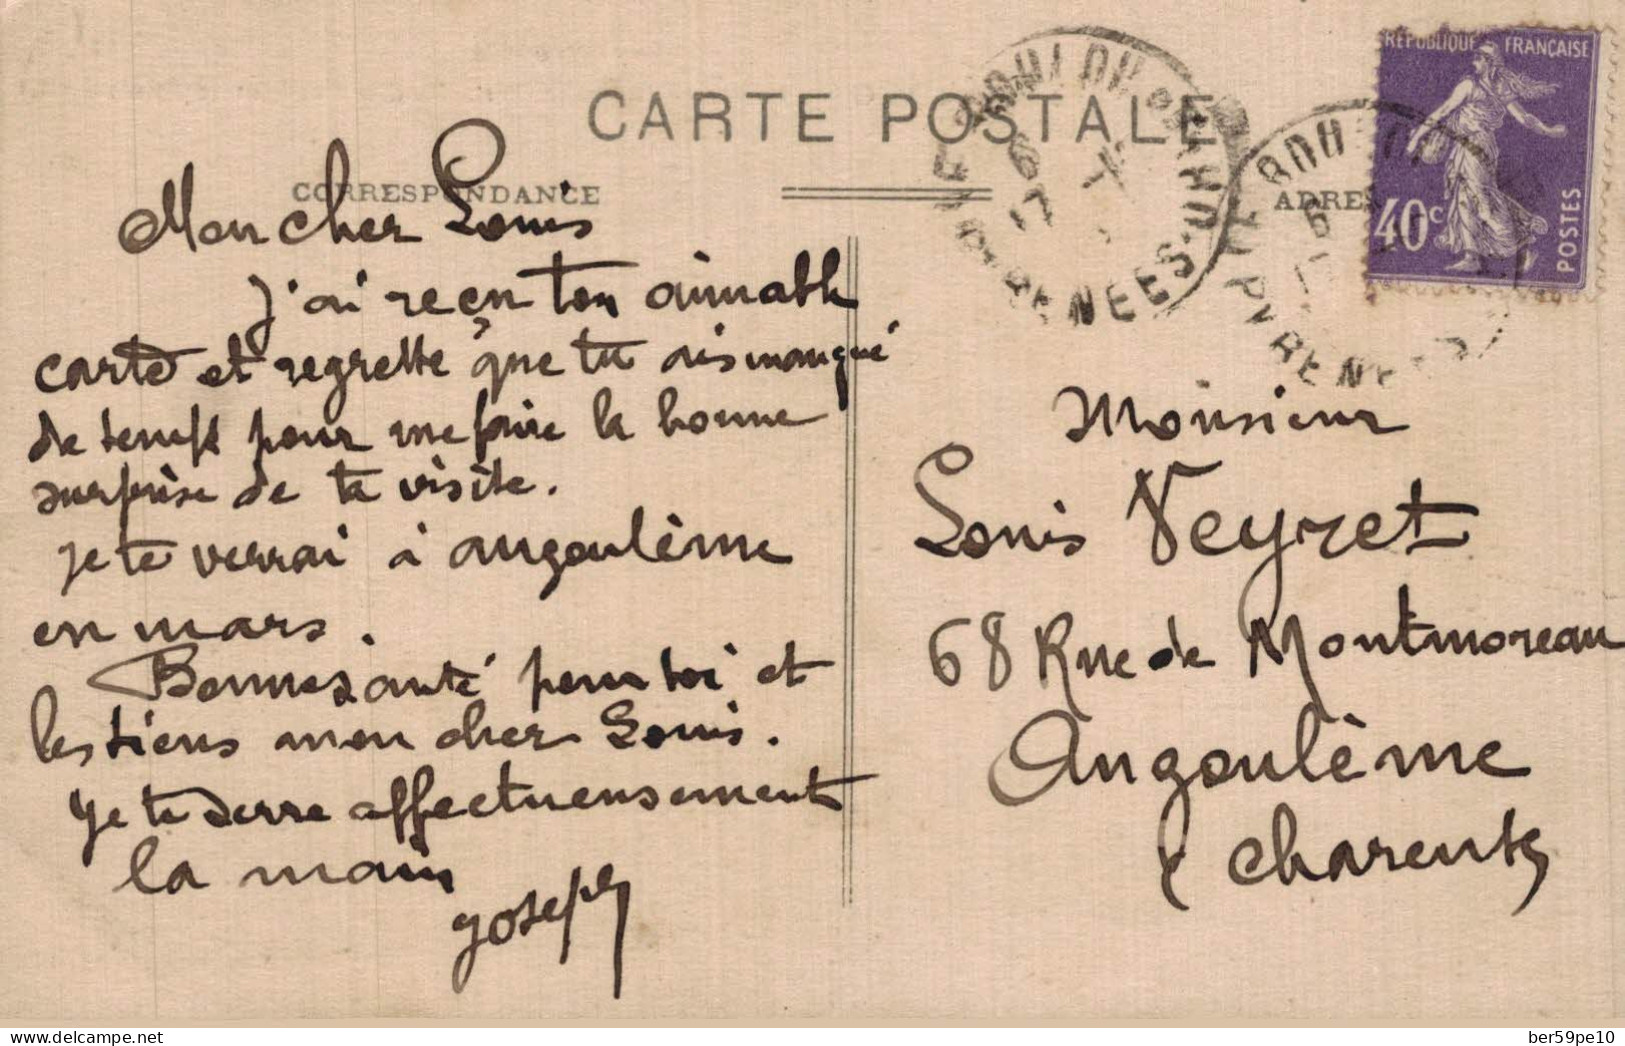 CARTE POSTALE
CORRESPONDANCE
Mon cher Louis
J'ai reçu ton aimable
carte et regrette que tu ais manqué
de temps pour me faire la bonne
surprise de ta visite.
je te verrai à angoulème
en mars.
Bonne santé pour toi et
les tiens mon cher Louis.
Je te serre affectueusement
la main
Joseph
ADRES
REPUBLIQUE FRANÇAISE
40c
POSTES
PYRENEES
Monsieur
Louis Veyret
68 Rue de Montmoreau
Angoulème
Charente
www.delcampe.net
ber59pe10